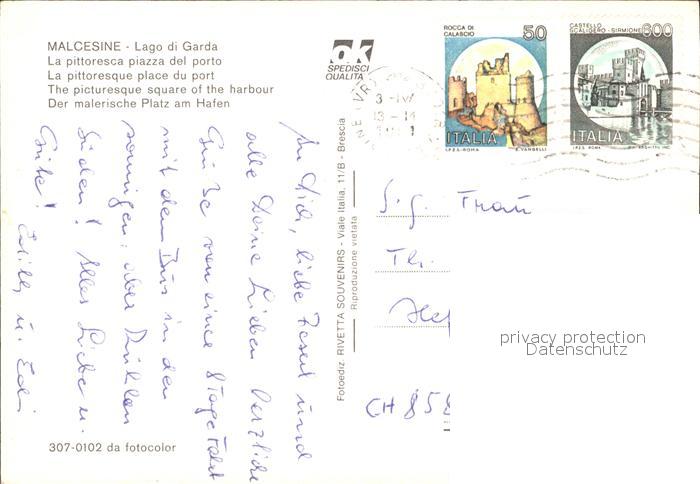 MALCESINE - Lago di Garda
La pittoresca piazza del porto
La pittoresque place du port
The picturesque square of the harbour
Der malerische Platz am Hafen
ok
SPEDISCI
QUALITA'
ROCCA DI
CALASCIO
50
ITALIA
I.P.Z.S.-ROMA
E. VANGELLI
CASTELLO
SCALIGERO - SIRMIONE
600
ITALIA
I.P.Z.S. ROMA
An Dich, liebe und
alle Deine Lieben herzliche
Grüße von einer 8 Tagefahrt
mit dem Bus in den
sonnigen, aber
Süden! Alles Liebe u.
Gute!
u. Edi
Fotoediz. RIVETTA SOUVENIRS - Viale Italia, 11/B - Brescia
Riproduzione vietata
Sig. Frau
Th.
CH 858
307-0102 da fotocolor
privacy protection
Datenschutz